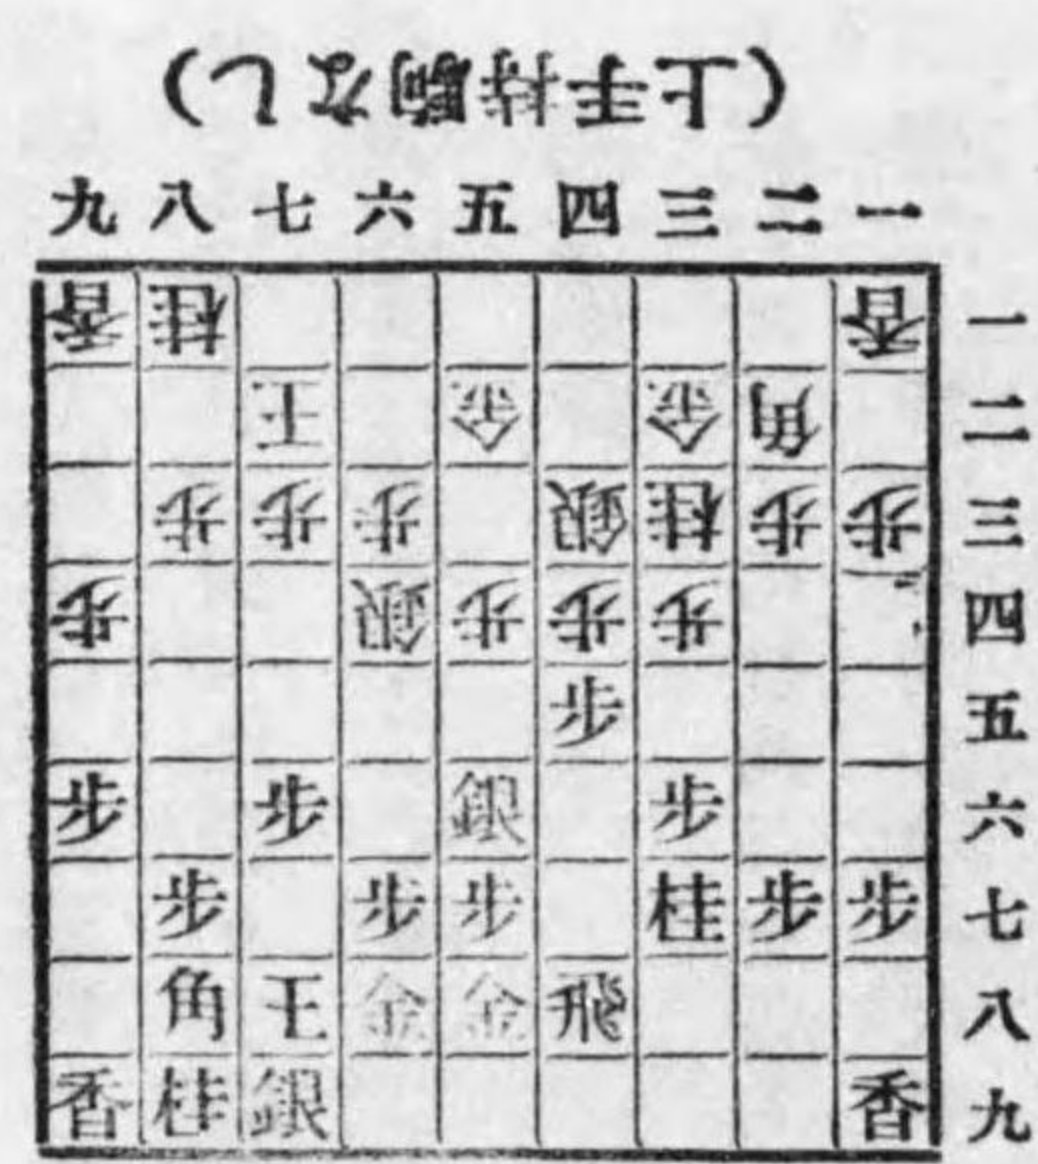 (上手持駒なし)
九八七六五四三二一
香桂香一
王金金角二
歩歩歩銀桂歩歩三
歩銀歩歩歩四
歩五
歩歩銀歩六
歩歩歩桂歩歩七
角王金金飛八
香桂銀香九